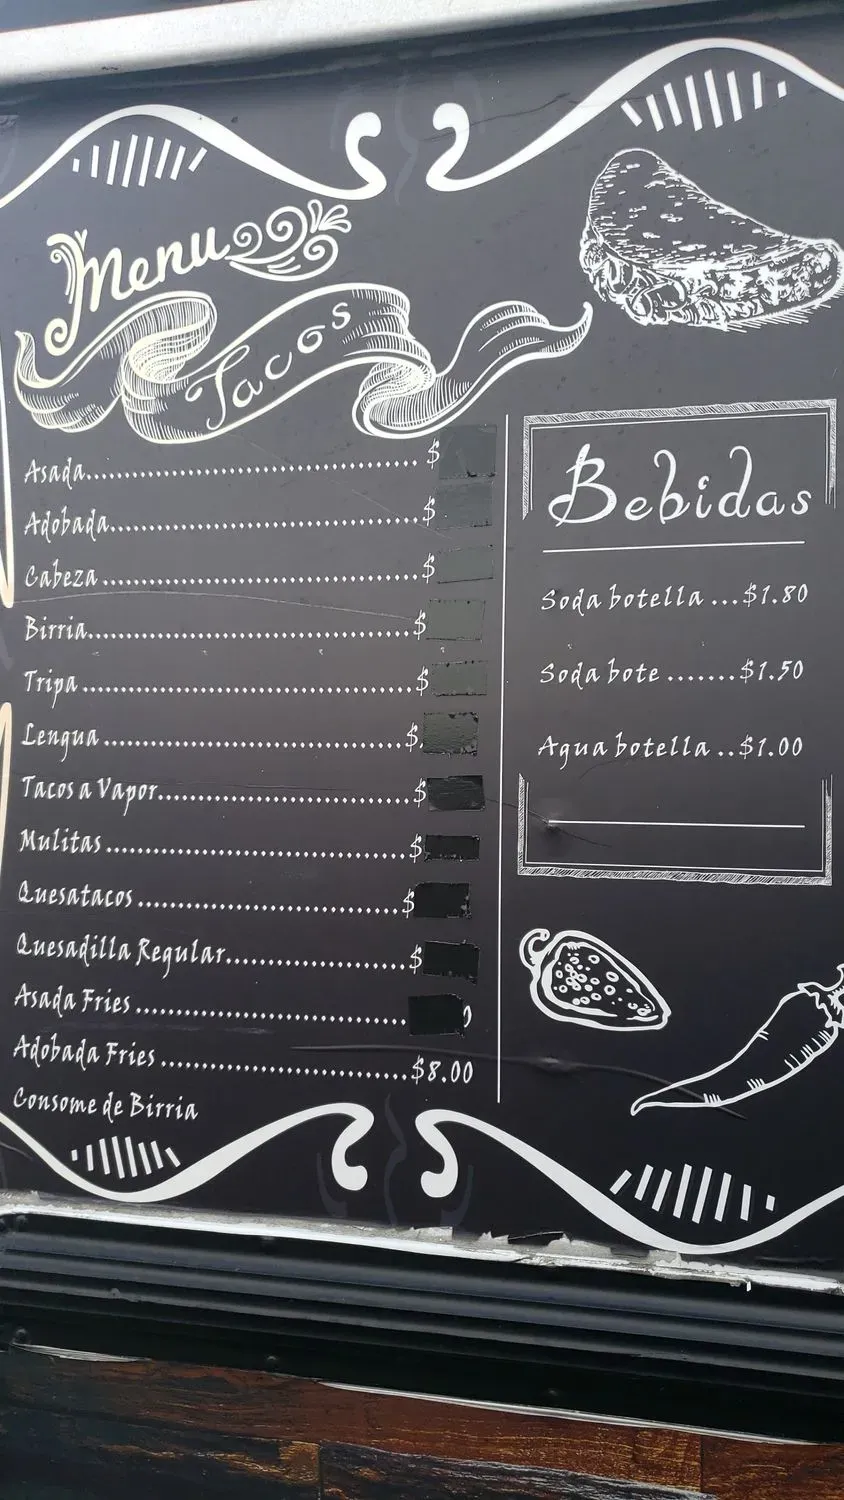 Menu
Tacos
Asada.......................................... $
Adobada........................................$
Cabeza .........................................$
Birria..........................................$
Tripa ..........................................$
Lengua .........................................$.
Tacos a Vapor...................................$
Mulitas ........................................$
Quesatacos .....................................$
Quesadilla Regular..............................$
Asada Fries ....................................
Adobada Fries ..................................$8.00
Consome de Birria
Bebidas
Soda botella ...$1.80
Soda bote .......$1.50
Agua botella ..$1.00